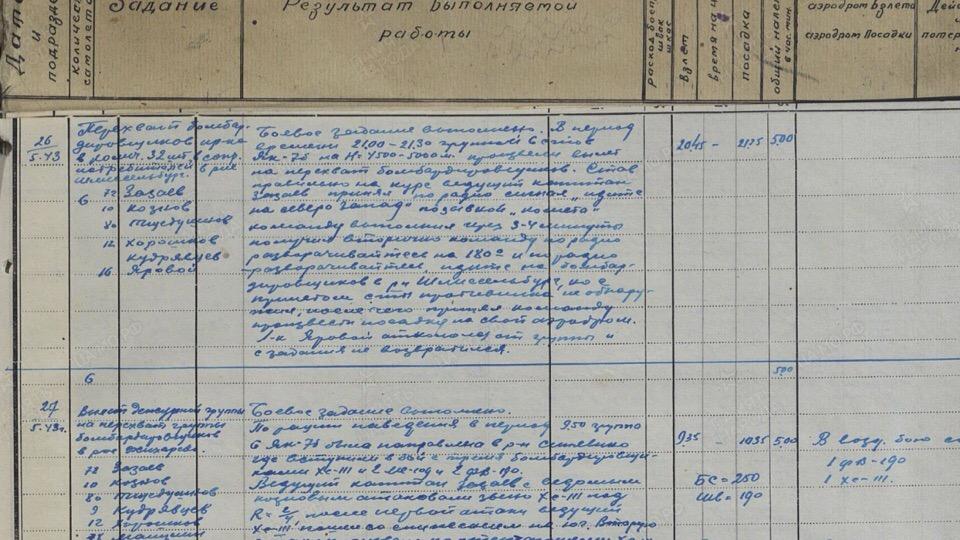 Дата
и
подразд
количес
самолето
Задание
Результат выполняемой
работы
расход боеп
швак
шкас
взлет
время на ц
посадка
общий налет
в час. мин.
аэродром Взлета
аэродром Посадки
Дей
потер
26
5-43
Перехват бомбар-
дировщиков пр-ка
в колич. 32 шт в сопр.
истребителей в р-не
Шлиссельбург.
6
72 Зазаев
10 Козлов
80
12 Хорошков
Кудрявцев
16 Яровой
Боевое задание выполнено. В период
времени 21,00-21,30 группой в составе
Як-7б на Н=4500-5000м произвели вылет
на перехват бомбардировщиков. Став
правильно на курс ведущий капитан
Зазаев принял по радио сигнал „идите
на северо запад" позывной „комета"
команду выполнил через 3-4 минуты
получил вторично команду по радио
разворачивайтесь на 180° и по радио
разворачивайтесь, идите на бомбар-
дировщиков в р-н Шлиссельбург, но с
противника не обнару-
жил, после чего принял команду
произвести посадку на свой аэродром.
Л-к Яровой откололся от группы и
с задания не возвратился.
2045 - 2135 5,00
6
500
27
5-43г.
Вылет дежурной группы
на перехват группы
бомбардировщиков
в р-не
72 Зазаев
10 Козлов
80
9 Кудрявцев
12 Хорошков
Боевое задание выполнено.
По рации наведения в период 950 группа
6 Як-7б была направлена в р-н Синявино
где вступили в бой с тремя бомбардировщи-
ками Хе-III и 2 Ме-109 и 2 ФВ-190.
Ведущий капитан Зазаев с ведомым
козловым атаковали звено Хе-III под
R = 2/4 после первой атаки ведущий
Хе-III пошел со снижением на юг. Вторую
935 - 1035 5,00
БС = 250
ШВ = 190
В возд. бою
1 ФВ-190
1 Хе-III.